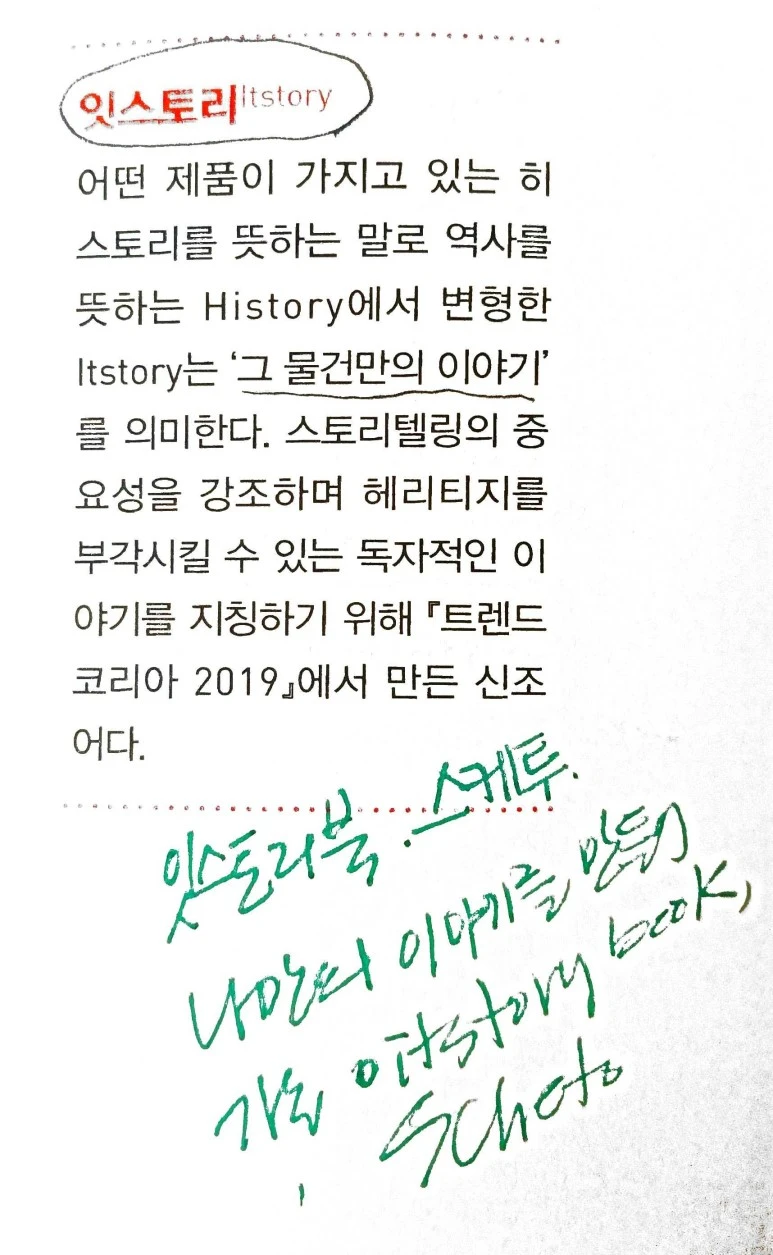 잇스토리Itstory
어떤 제품이 가지고 있는 히
스토리를 뜻하는 말로 역사를
뜻하는 History에서 변형한
Itstory는 ‘그 물건만의 이야기’
를 의미한다. 스토리텔링의 중
요성을 강조하며 헤리티지를
부각시킬 수 있는 독자적인 이
야기를 지칭하기 위해 『트렌드
코리아 2019』에서 만든 신조
어다.
잇스토리북. 스케투.
나만의 이야기를 만들어
가는 itstory book,
Scheto